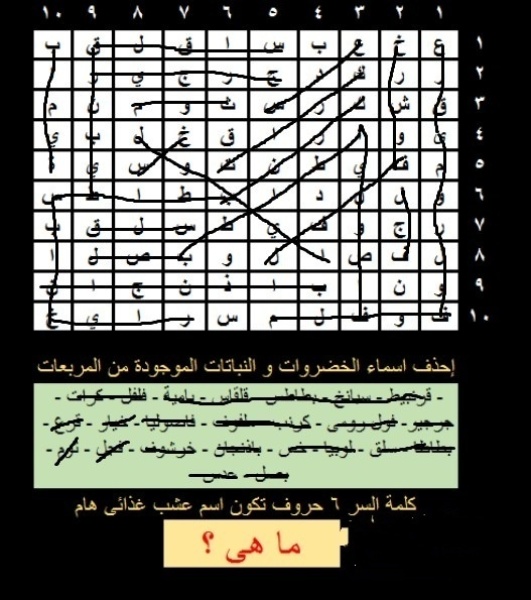 ١ ٢ ٣ ٤ ٥ ٦ ٧ ٨ ٩ ١٠
١ ع خ ع ب س ا ق ل ق ب
٢ ر ر ك د ج ر ج ي ر
٣ ق ش ك ر س ث و م ن م
٤ و ر ا ق خ ل ب ي
٥ م ف ي ط ن ك و س ي ة
٦ و ل ل د ا ب ط ا ط س
٧ ر ج و ف ي ط س ل ق ب
٨ ل ف ص ا ل و ب ص ل ا
٩ و ن ب ا ذ ن ج ا ن
١٠ ف و ف ل م س ر ا ي خ
إحذف اسماء الخضروات و النباتات الموجودة من المربعات
- قرنبيط - سبانخ - بطاطس - قلقاس - بامية - فلفل - كرات -
جرجير - فول رومى - كرنب - ملفوف - فاصوليا - خيار - قرع -
بطاطا - سلق - لوبيا - خس - باذنجان - خرشوف - فجل - ثوم -
بصل - عدس -
كلمة السر ٦ حروف تكون اسم عشب غذائى هام
ما هى ؟